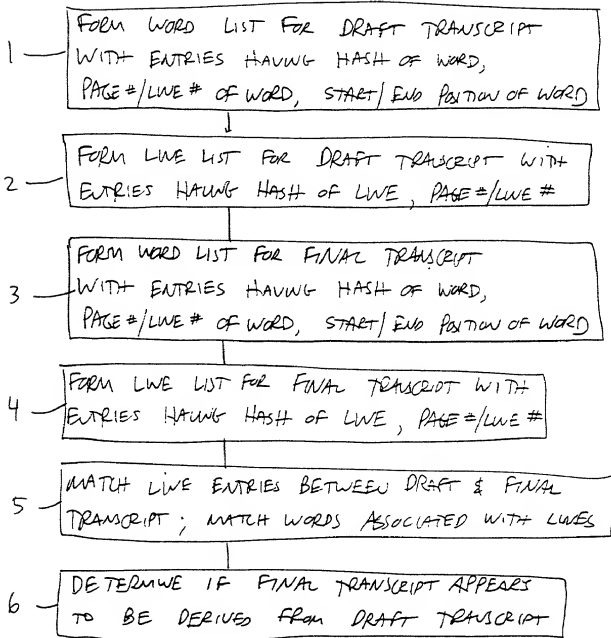 FORM WORD LIST FOR DRAFT TRANSCRIPT
1
WITH ENTRIES HAVING HASH OF WORD,
PAGE #/LINE # OF WORD, START/END POSITION OF WORD
FORM LINE LIST FOR DRAFT TRANSCRIPT WITH
2
ENTRIES HAVING HASH OF LINE, PAGE #/LINE #
FORM WORD LIST FOR FINAL TRANSCRIPT
3
WITH ENTRIES HAVING HASH OF WORD,
PAGE #/LINE # OF WORD, START/END POSITION OF WORD
FORM LINE LIST FOR FINAL TRANSCRIPT WITH
4
ENTRIES HAVING HASH OF LINE, PAGE #/LINE #
MATCH LINE ENTRIES BETWEEN DRAFT & FINAL
5
TRANSCRIPT; MATCH WORDS ASSOCIATED WITH LINES
DETERMINE IF FINAL TRANSCRIPT APPEARS
6
TO BE DERIVED FROM DRAFT TRANSCRIPT